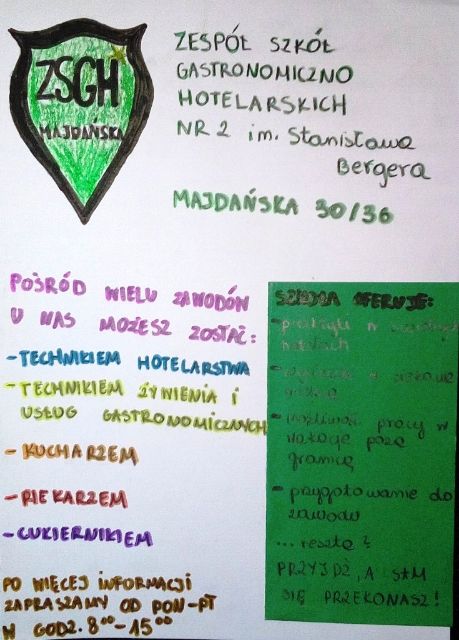 ZSGH
MAJDAŃSKA
ZESPÓŁ SZKÓŁ
GASTRONOMICZNO
HOTELARSKICH
NR 2 im. Stanisława
Bergera
MAJDAŃSKA 30/36
POŚRÓD WIELU ZAWODÓW
U NAS MOŻESZ ZOSTAĆ:
-TECHNIKIEM HOTELARSTWA
-TECHNIKIEM ŻYWIENIA I
USŁUG GASTRONOMICZNYCH
- KUCHARZEM
- PIEKARZEM
-CUKIERNIKIEM
PO WIĘCEJ INFORMACJI
ZAPRASZAMY OD PON-PT
W GODZ. 8⁰⁰-15⁰⁰
SZKOŁA OFERUJE:
- praktyki w
hotelach
- w ciekawe
miejsca
- możliwość pracy w
poza
granicą
- przygotowanie do
zawodu
...resztę?
PRZYJDŹ, A SAM
SIĘ PRZEKONASZ!